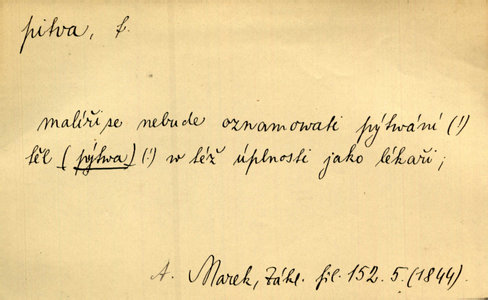 pitva, f.
malíři se nebude oznamowati pýtwání (!)
těl (pýtwa) (!) w též úplnosti jako lékaři;
A. Marek, Zákl. fil. 152. 5. (1844)